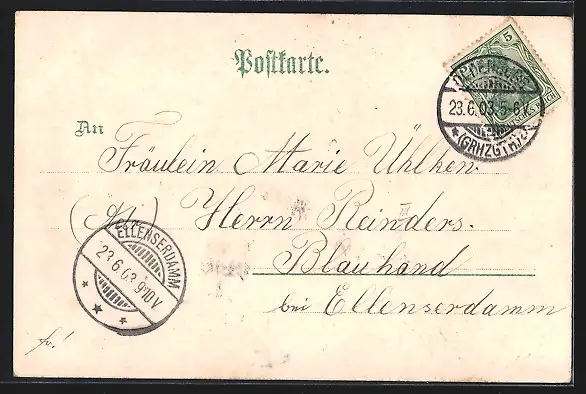 Postkarte.
5
OLDENBURG
23.6.03.5-6V.
* (GRHZGTH.)
An
Fräulein Marie Uhlken.
(Adr.) Herrn Reinders.
Blauhand
bei Ellenserdamm
ELLENSERDAMM
23.6.03.9-10V
fr.!